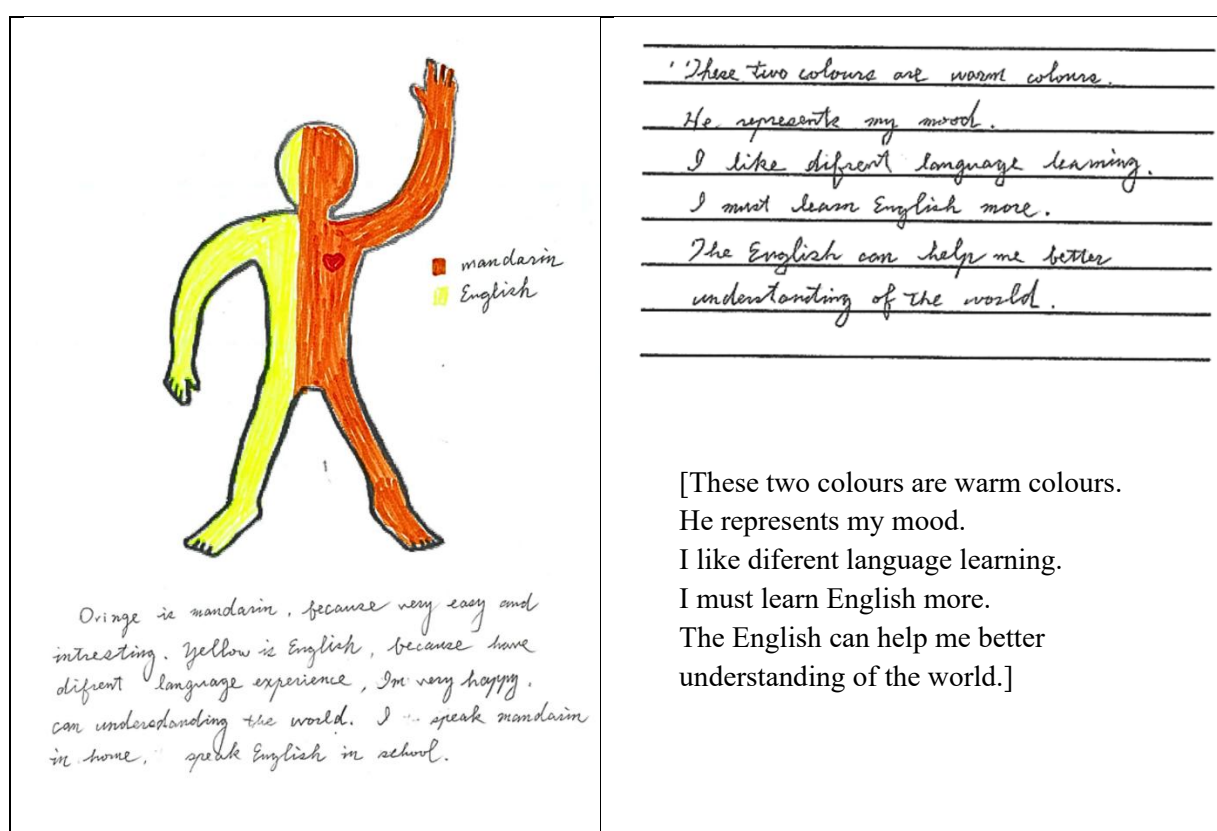 mandarin
English
Oringe is mandarin, because very easy and
intresting. Yellow is English, because have
difrent language experience, Im very happy.
can understanding the world. I speak mandarin
in home, speak English in school.
These two colours are warm colours.
He represents my mood.
I like difrent language learning.
I must learn English more.
The English can help me better
understanding of the world.
[These two colours are warm colours.
He represents my mood.
I like diferent language learning.
I must learn English more.
The English can help me better
understanding of the world.]